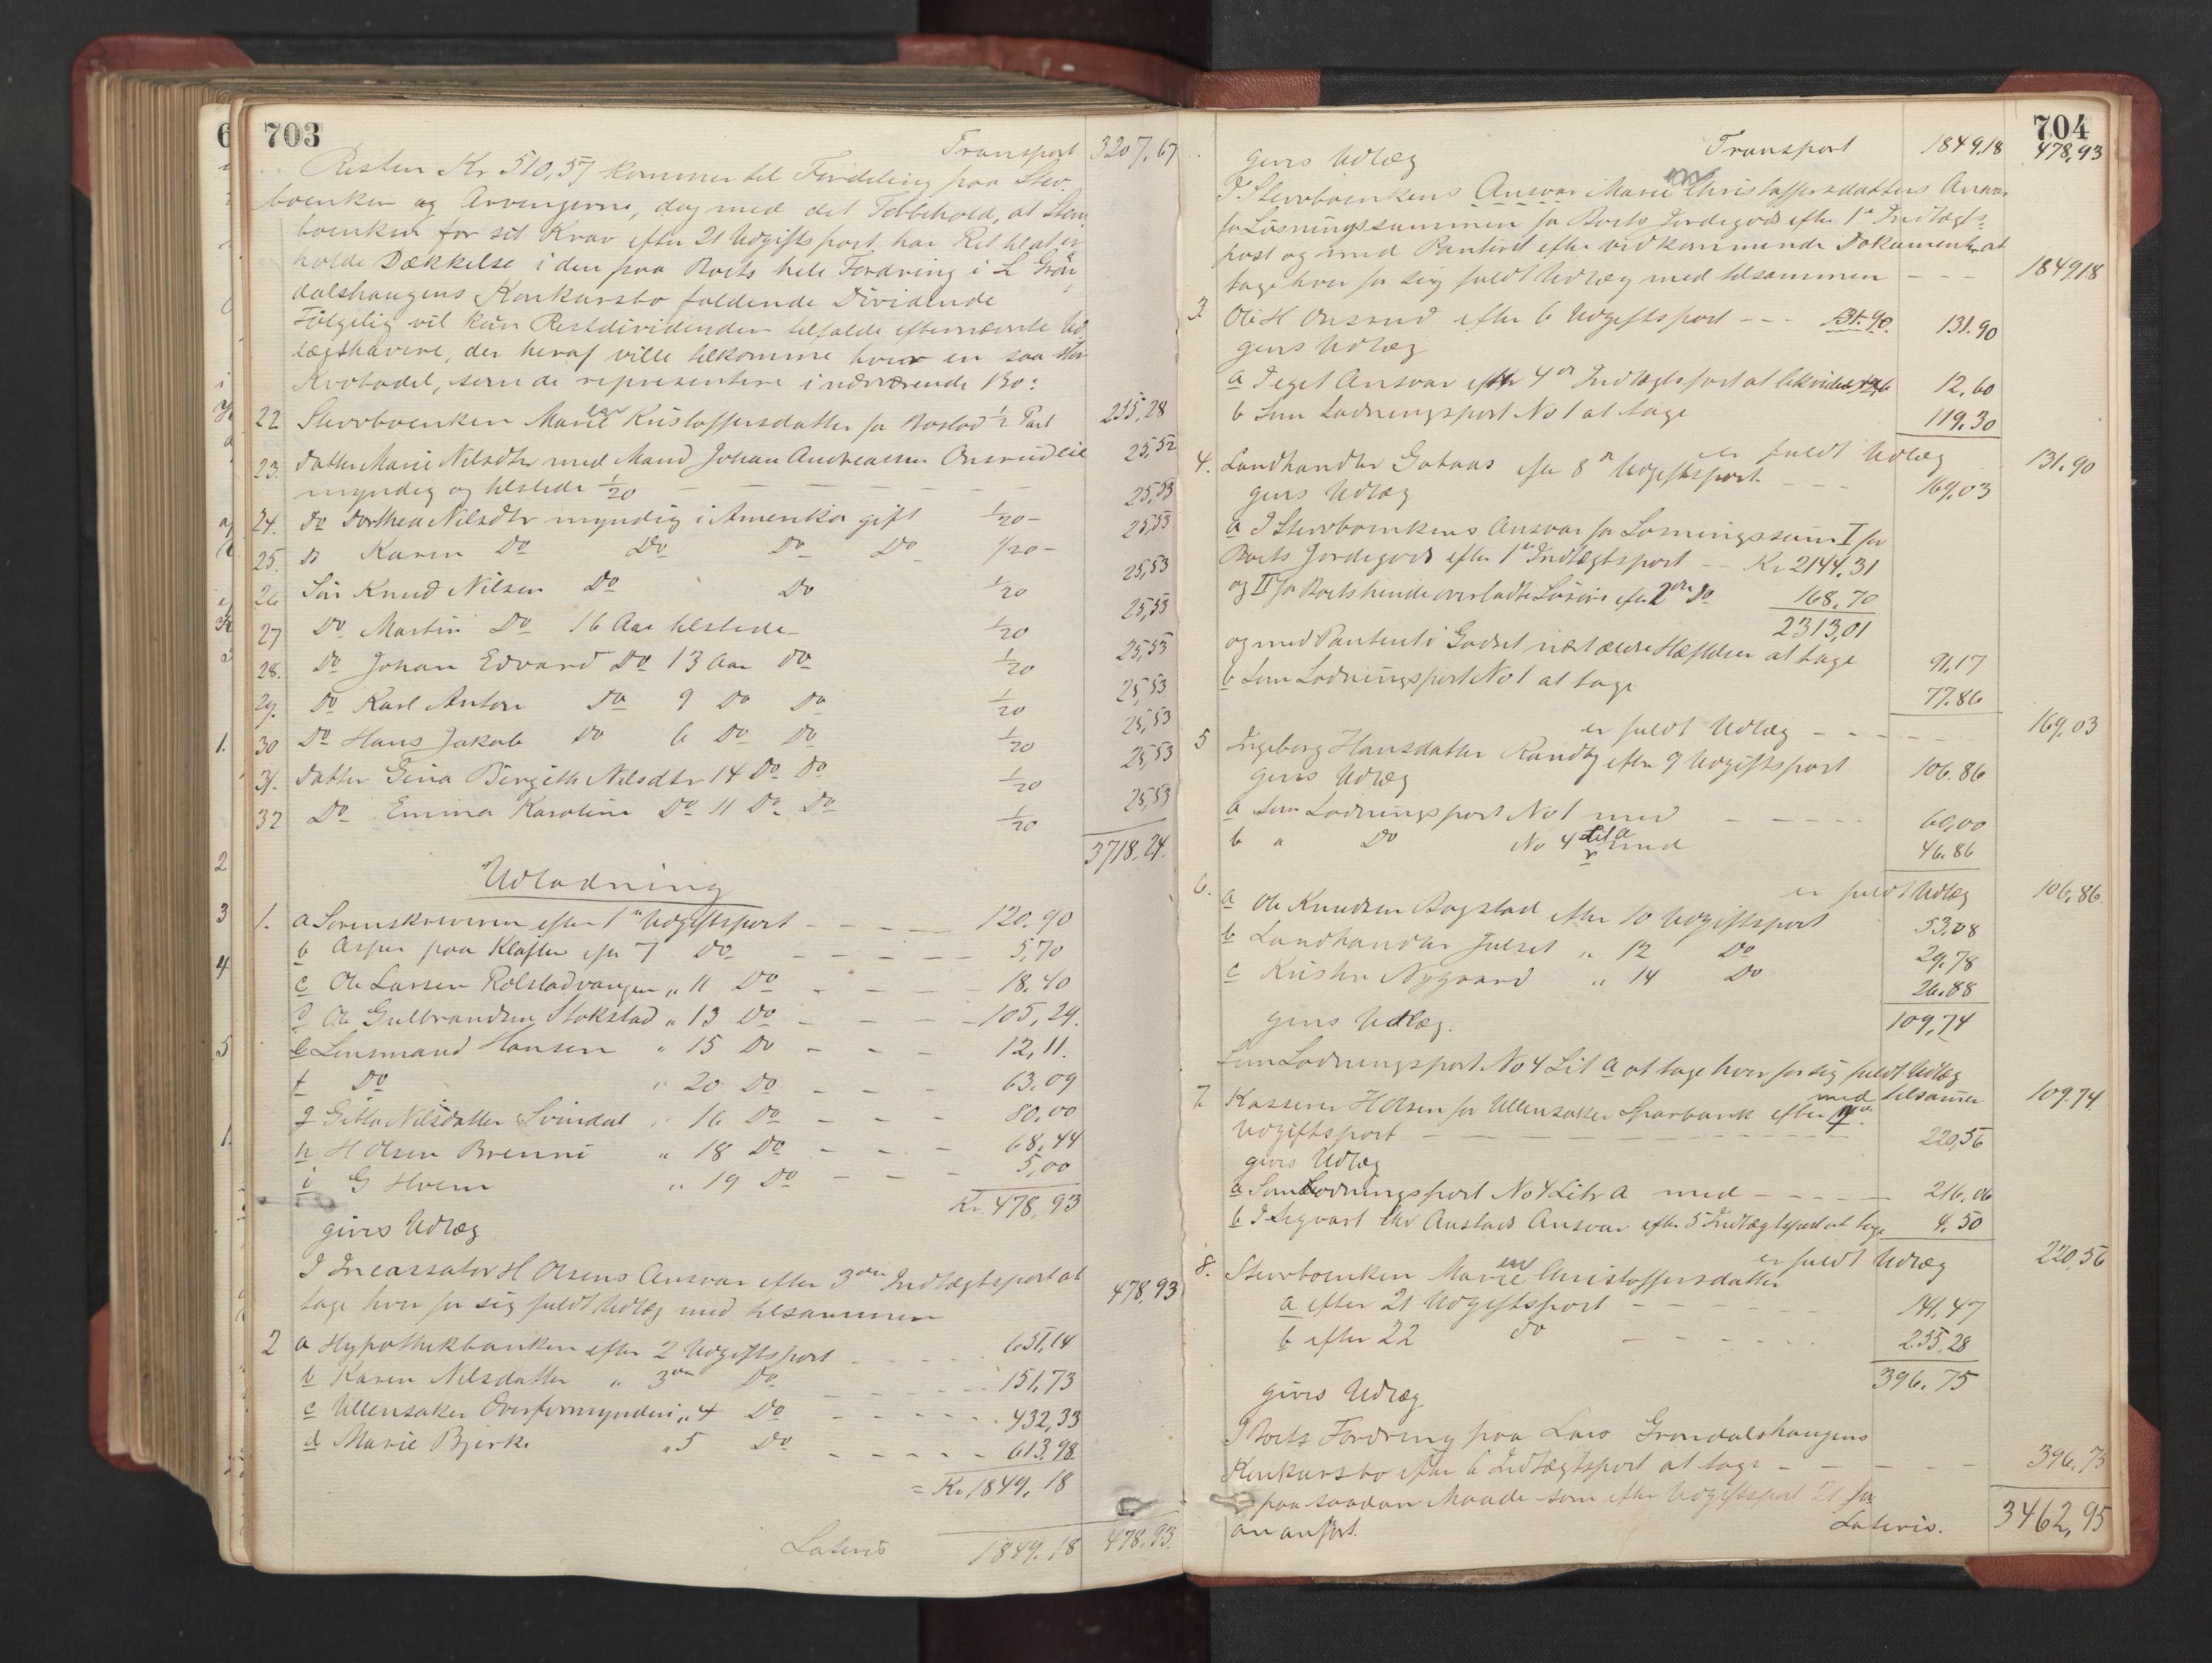 703
Transport 3207,67
Resten Kr 510,57 kommer til Fordeling paa Sterv
boenken og Arvingerne, dog med det Forbehold, at Sterv
boenken for sit Krav efter 21 Udgiftspost har Ret til at er
holde Dækkelse i den paa Boets hele Fordring i L Grön
dalshaugens Konkursbo faldende Dividende
Følgelig vil kun Restdividenden tilfalde efternævnte Ud
lægshavere, der heraf ville tilkomme hver en saa stor
Kvotadel, som de representere i nærværende Bo:
22 Stervboenken Maren Kristoffersdatter for Boslod ½ Part 255,28
23. Datter Marie Nilsdtr med Mand Johan Andreassen Onsrudeie
myndig og tilstede 1/20 — — — — — 25,52
24. Do Dorthea Nilsdtr myndig i Amerika gift 1/20 - 25,53
25. Do Karen Do Do Do Do 1/20 - 25,53
26 Søn Knud Nilsen Do Do 1/20 25,53
27 Do Martin Do 16 Aar tilstede 1/20 25,53
28. Do Johan Edvard Do 13 Aar Do 1/20 25,53
29. Do Karl Anton Do 9 Do Do 1/20 25,53
30 Do Hans Jakob Do 6 Do Do 1/20 25,53
31. Datter Gina Birgithe Nilsdtr 14 Do Do 1/20 25,53
32 Do Emma Karoline Do 11 Do Do 1/20 25,53
3718,24.
Udlodning
1. a Sorenskriveren efter 1ste Udgiftspost - - - - 120.90
b Asper paa Kløften efter 7 Do - - - - - 5,70
c Ole Larsen Rolstadvangen " 11 Do - - - 18.40
d Ole Gulbrandsen Stokstad " 13 Do - - - 105,29.
e Lensmand Hansen " 15 Do - - - 12,11.
f Do " 20 Do - - - 63.09
g Gitla Nilsdatter Svindal " 16 Do - - - 80,00
h H Olsen Brenni " 18 Do - - - 68,44
i G Hoem " 19 Do - - - 5,00
Kr. 478,93
gives Udlæg
I Incassator H Olsens Ansvar efter 3die Indtægtspost at
tage hver for sig fuldt Udlæg med tilsammen 478,93
2 a Hypothekbanken efter 2 Udgiftspost - - - 651,14
b Karen Nilsdatter " 3die Do - - - - 151,73
c Ullensaker Overformynderi " 4 Do - - - - 432,33
d Marie Bjerke " 5 Do - - - - 613,98
= Kr 1849,18
Lateris 1849.18 478,93.
704
Transport 1849,18 478,93
gives Udlæg
I Stervboenkens Ansvar Maren Christoffersdatters Ansvar
for Løsningssummen for Boets Jordegods efter 1ste Indtægts-
post og med Panteret efter vedkommende Dokumenter at
tage hver for sig fuldt Udlæg med tilsammen - - - 1849,18
3. Ole H Onsrud efter 6 Udgiftspost - - - 131.90. 131.90
gives Udlæg
a I eget Ansvar efter 4de Indtægtspost at likvidere 12,60
b Som Lodningspost No 1 at tage 119,30
er fuldt Udlæg 131.90
4. Landhandler Gotaas efter 8de Udgiftspost - - - 169,03
gives Udlæg
a I Stervboenkens Ansvar for Løsningssum I for
Boets Jordegods efter 1ste Indtægtspost - - Kr 2144.31
og II for Boets hende overladte Løsøre efter 2den Do 168,70
2313,01
og med Panteret i Godset næst ældre Hæftelser at tage 91,17
b Som Lodningspost No 1 at tage 77.86
er fuldt Udlæg - - - 169,03
5 Ingeborg Hansdatter Randby efter 9 Udgiftspost 106.86
gives Udlæg
a Som Lodningspost No 1 med - - - - - 60,00
b " Do No 4 Lit a med 46.86
er fuldt Udlæg 106,86.
6. a Ole Knudsen Bogstad efter 10 Udgiftspost 53,08
b Landhandler Julset " 12 Do 29,78
c Kristen Nygaard " 14 Do 26.88
109,74
gives Udlæg.
Som Lodningspost No 4 Lit a at tage hver for sig fuldt Udlæg
med tilsammen 109.74
7. Kasserer H Olsen for Ullensaker Sparbank efter 17de
Udgiftspost - - - - - - - - 220,56
gives Udlæg
a Som Lodningspost No 4 Litr a med - - - - 216,06
b I Sigvart Chr Austads Ansvar efter 5 Indtægtspost at tage 4,50
er fuldt Udlæg 220,56
8. Stervboenken Maren Christoffersdatter
a efter 21 Udgiftspost - - - - - 141,47
b efter 22 do - - - - - 255.28
396,75
gives Udlæg
I Boets Fordring paa Lars Grøndalshaugens
Konkursbo efter 6 Indtægtspost at tage - - - - - 396,75
paa saadan Maade som efter Udgiftspost 21 for
an anført.
Lateris. 3462,95